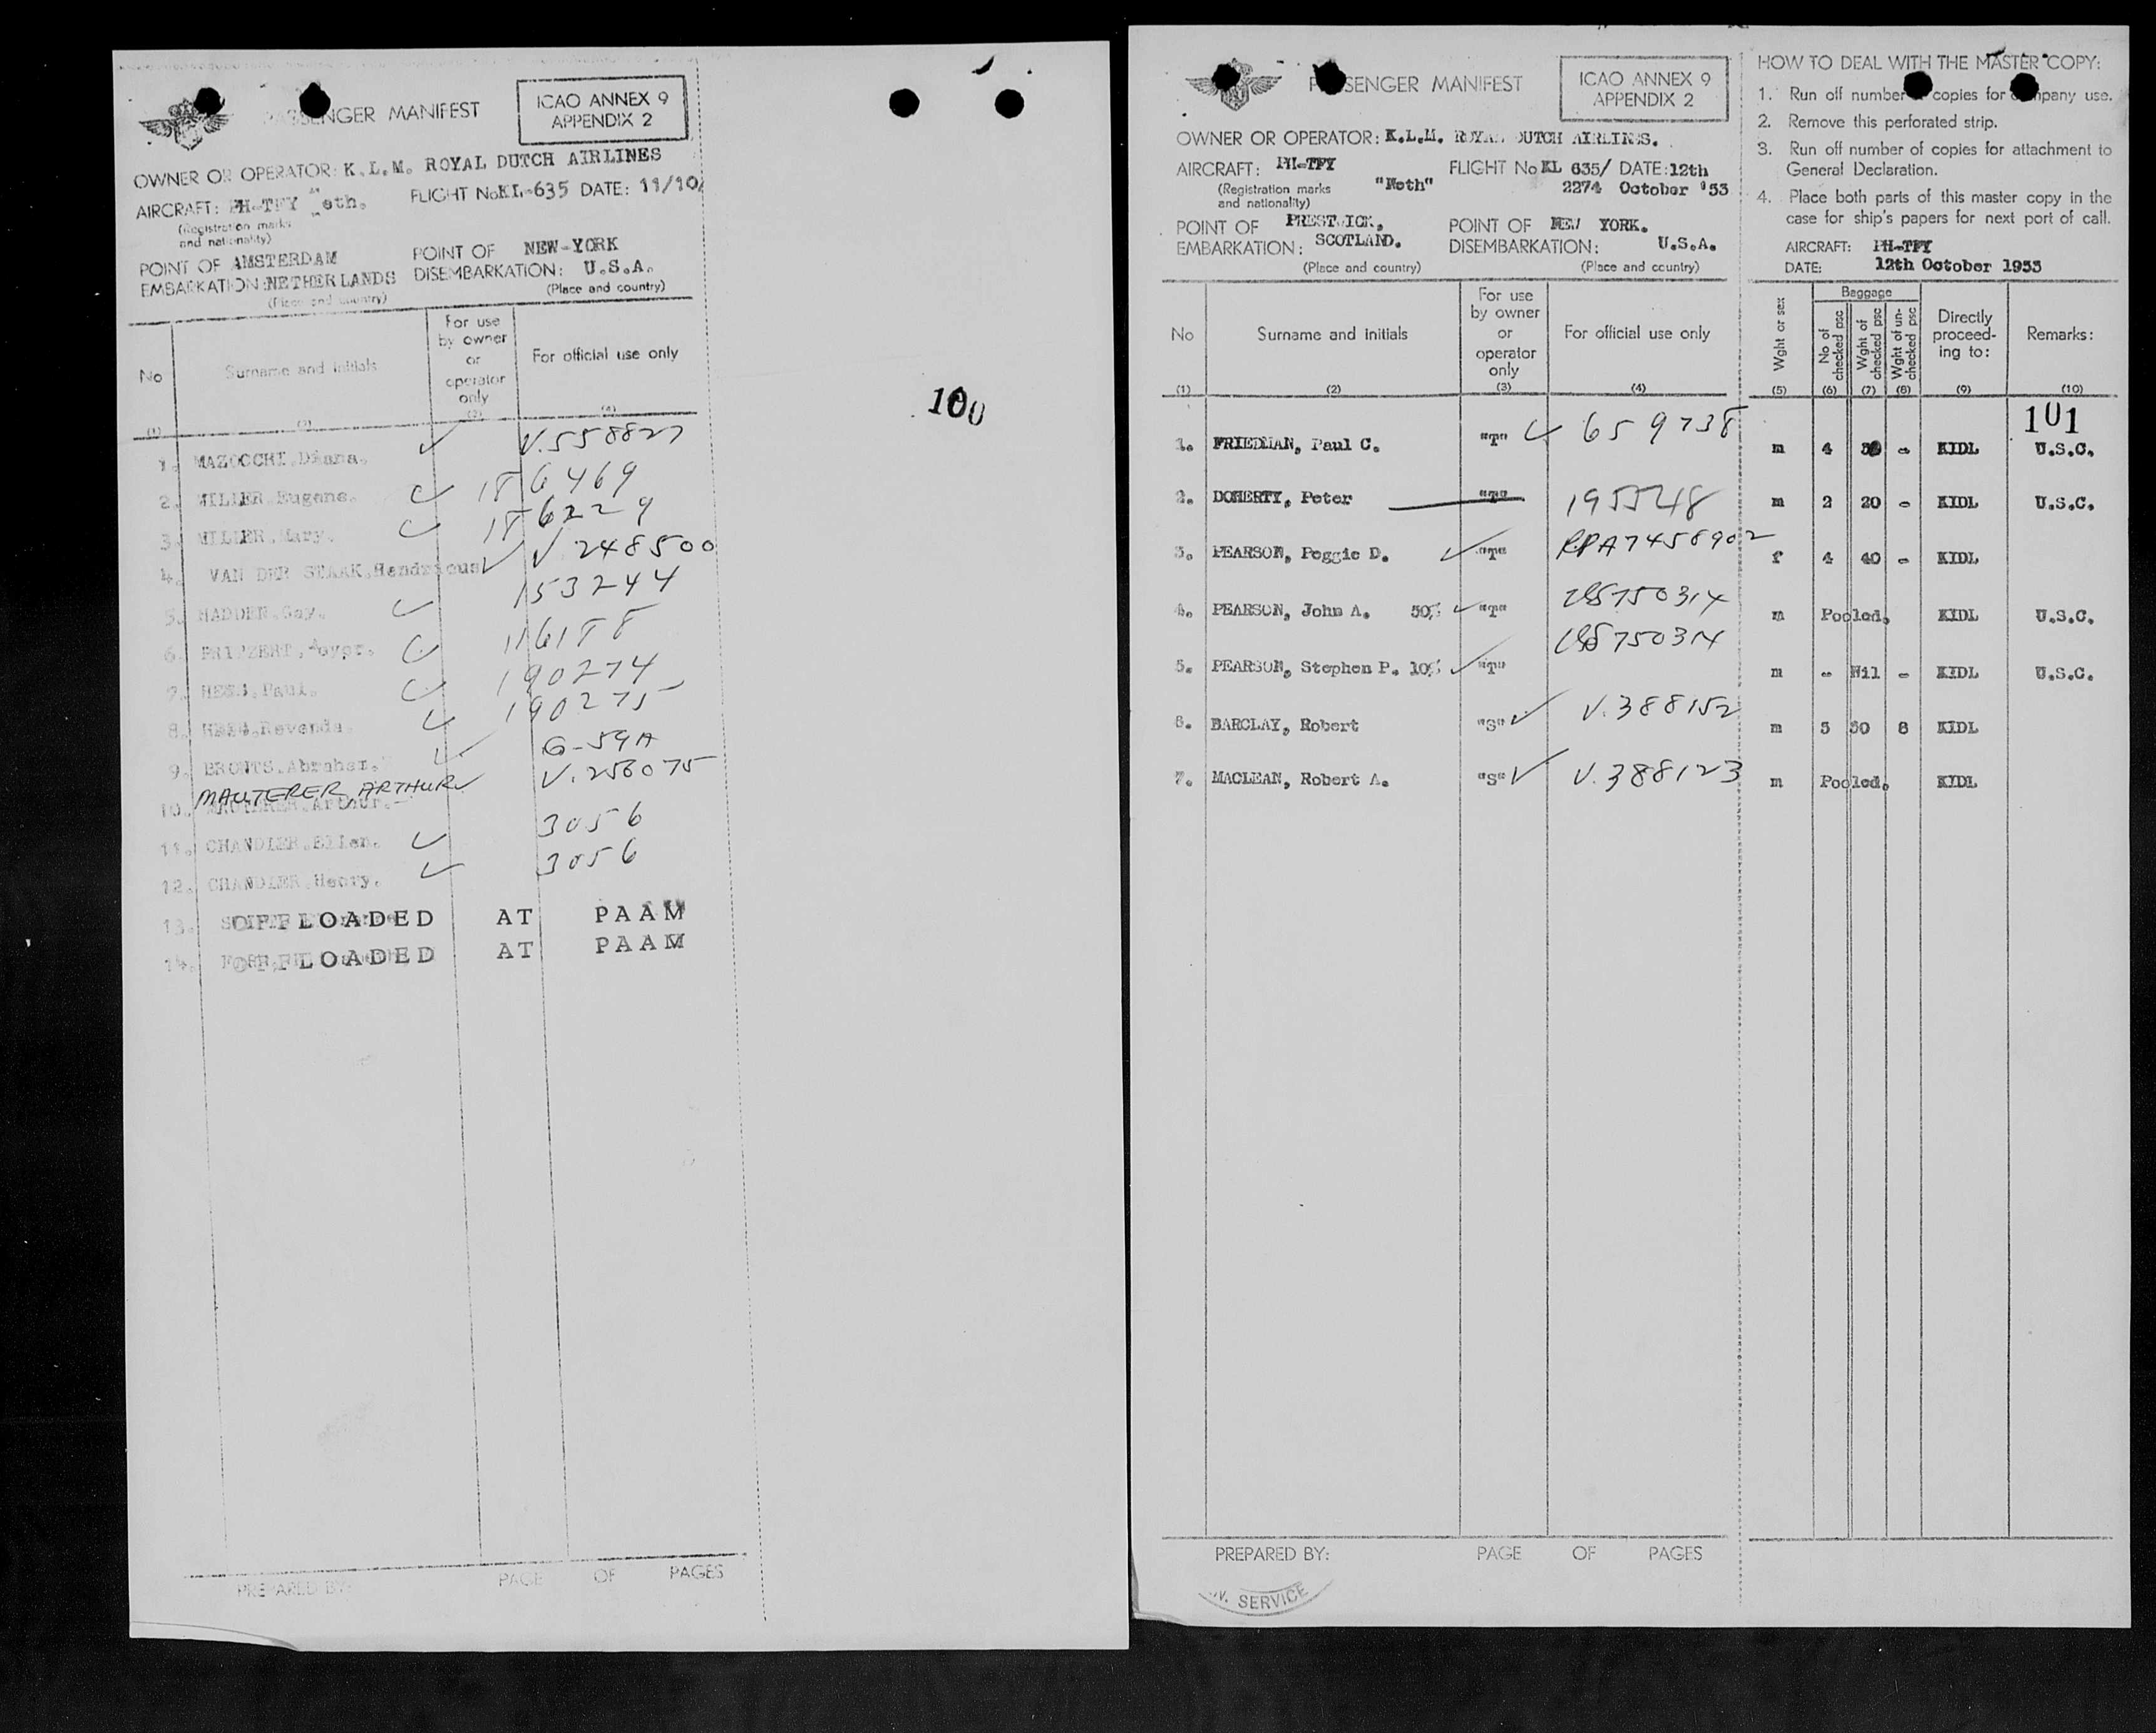 PASSENGER MANIFEST
ICAO ANNEX 9
APPENDIX 2
OWNER OR OPERATOR: K.L.M. ROYAL DUTCH AIRLINES
AIRCRAFT: PH-TFY Neth. FLIGHT No KL-635 DATE: 11/10/
(Registration marks
and nationality)
POINT OF AMSTERDAM POINT OF NEW-YORK
EMBARKATION: NETHERLANDS DISEMBARKATION: U.S.A.
(Place and country) (Place and country)
No Surname and initials For use by owner or operator only For official use only
(1) (2) (3) (4)
100
1. MAZOCCHI.Diana. V.558827
2. MILLER.Eugene. 186469
3. MILLER.Mary. 186229
4. VAN DER STAAK.Hendricus V.248500
5. MADDEN.Gay. 153244
6. 116188
7. HESS.Paul. 190274
8. 190275
9. BRONTS.Abraham. G-59A
10. MAUTERER, ARTHUR V.256075
11. CHANDLER.Ellen. 3056
12. CHANDLER.Henry. 3056
13. OFFLOADED AT PAAM
14. OFFLOADED AT PAAM
PREPARED BY: PAGE OF PAGES
PASSENGER MANIFEST
ICAO ANNEX 9
APPENDIX 2
OWNER OR OPERATOR: K.L.M. ROYAL DUTCH AIRLINES.
AIRCRAFT: PH-TFY "Neth" FLIGHT No KL 635/ DATE: 12th
(Registration marks 2274 October '53
and nationality)
POINT OF PRESTWICK, POINT OF NEW YORK.
EMBARKATION: SCOTLAND. DISEMBARKATION: U.S.A.
(Place and country) (Place and country)
HOW TO DEAL WITH THE MASTER COPY:
1. Run off number of copies for company use.
2. Remove this perforated strip.
3. Run off number of copies for attachment to
General Declaration.
4. Place both parts of this master copy in the
case for ship's papers for next port of call.
AIRCRAFT: PH-TFY
DATE: 12th October 1953
No Surname and initials For use by owner or operator only For official use only Wght or sex Baggage No of checked psc Wght of checked psc Wght of un-checked psc Directly proceed-ing to: Remarks:
(1) (2) (3) (4) (5) (6) (7) (8) (9) (10)
101
1. FRIEDMAN, Paul C. "T" 659738 m 4 - KIDL U.S.C.
2. DOHERTY, Peter "T" 195548 m 2 20 - KIDL U.S.C.
3. PEARSON, Peggie D. "T" RPA7458902 f 4 40 - KIDL
4. PEARSON, John A. 50% "T" 750314 m Pooled. KIDL U.S.C.
5. PEARSON, Stephen P. 10% "T" 750314 m - Nil - KIDL U.S.C.
6. BARCLAY, Robert "S" V.388152 m 5 50 8 KIDL
7. MACLEAN, Robert A. "S" V.388123 m Pooled. KIDL
PREPARED BY: PAGE OF PAGES
SERVICE